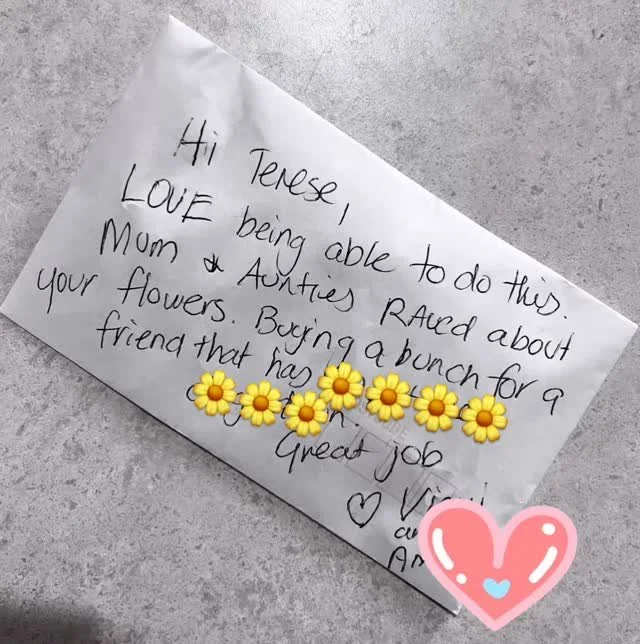 Hi Terese,
LOVE being able to do this.
Mum & Aunties RAved about
your flowers. Buying a bunch for a
friend that has
Great job
♡